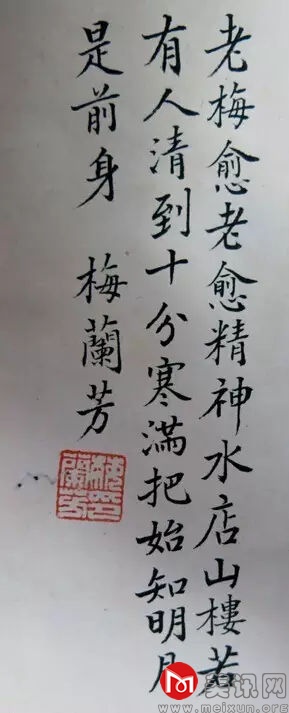 老梅愈老愈精神水店山樓若
有人清到十分寒滿把始知明月
是前身 梅蘭芳
美讯网
www.meixun.org